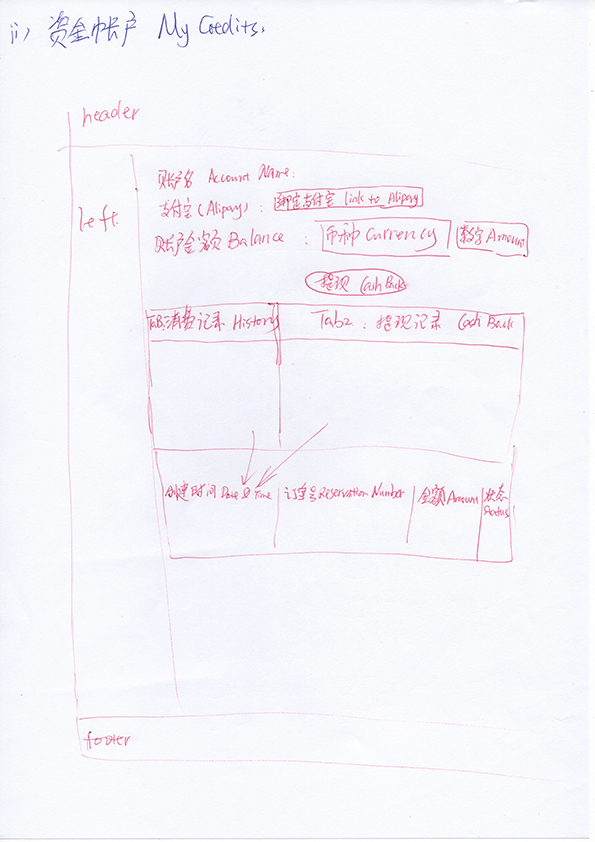 ii) 资金帐户 My Credits.
header
left
账户名 Account Name:
支付宝 (Alipay) : 绑定支付宝 Link to Alipay
账户金额 Balance : 币种 Currency 数字 Amount
提现 Cash Back
Tab1: 消费记录 History Tab2: 提现记录 Cash Back
创建时间 Date & Time 订单号 Reservation Number 金额 Amount 状态
Status
footer